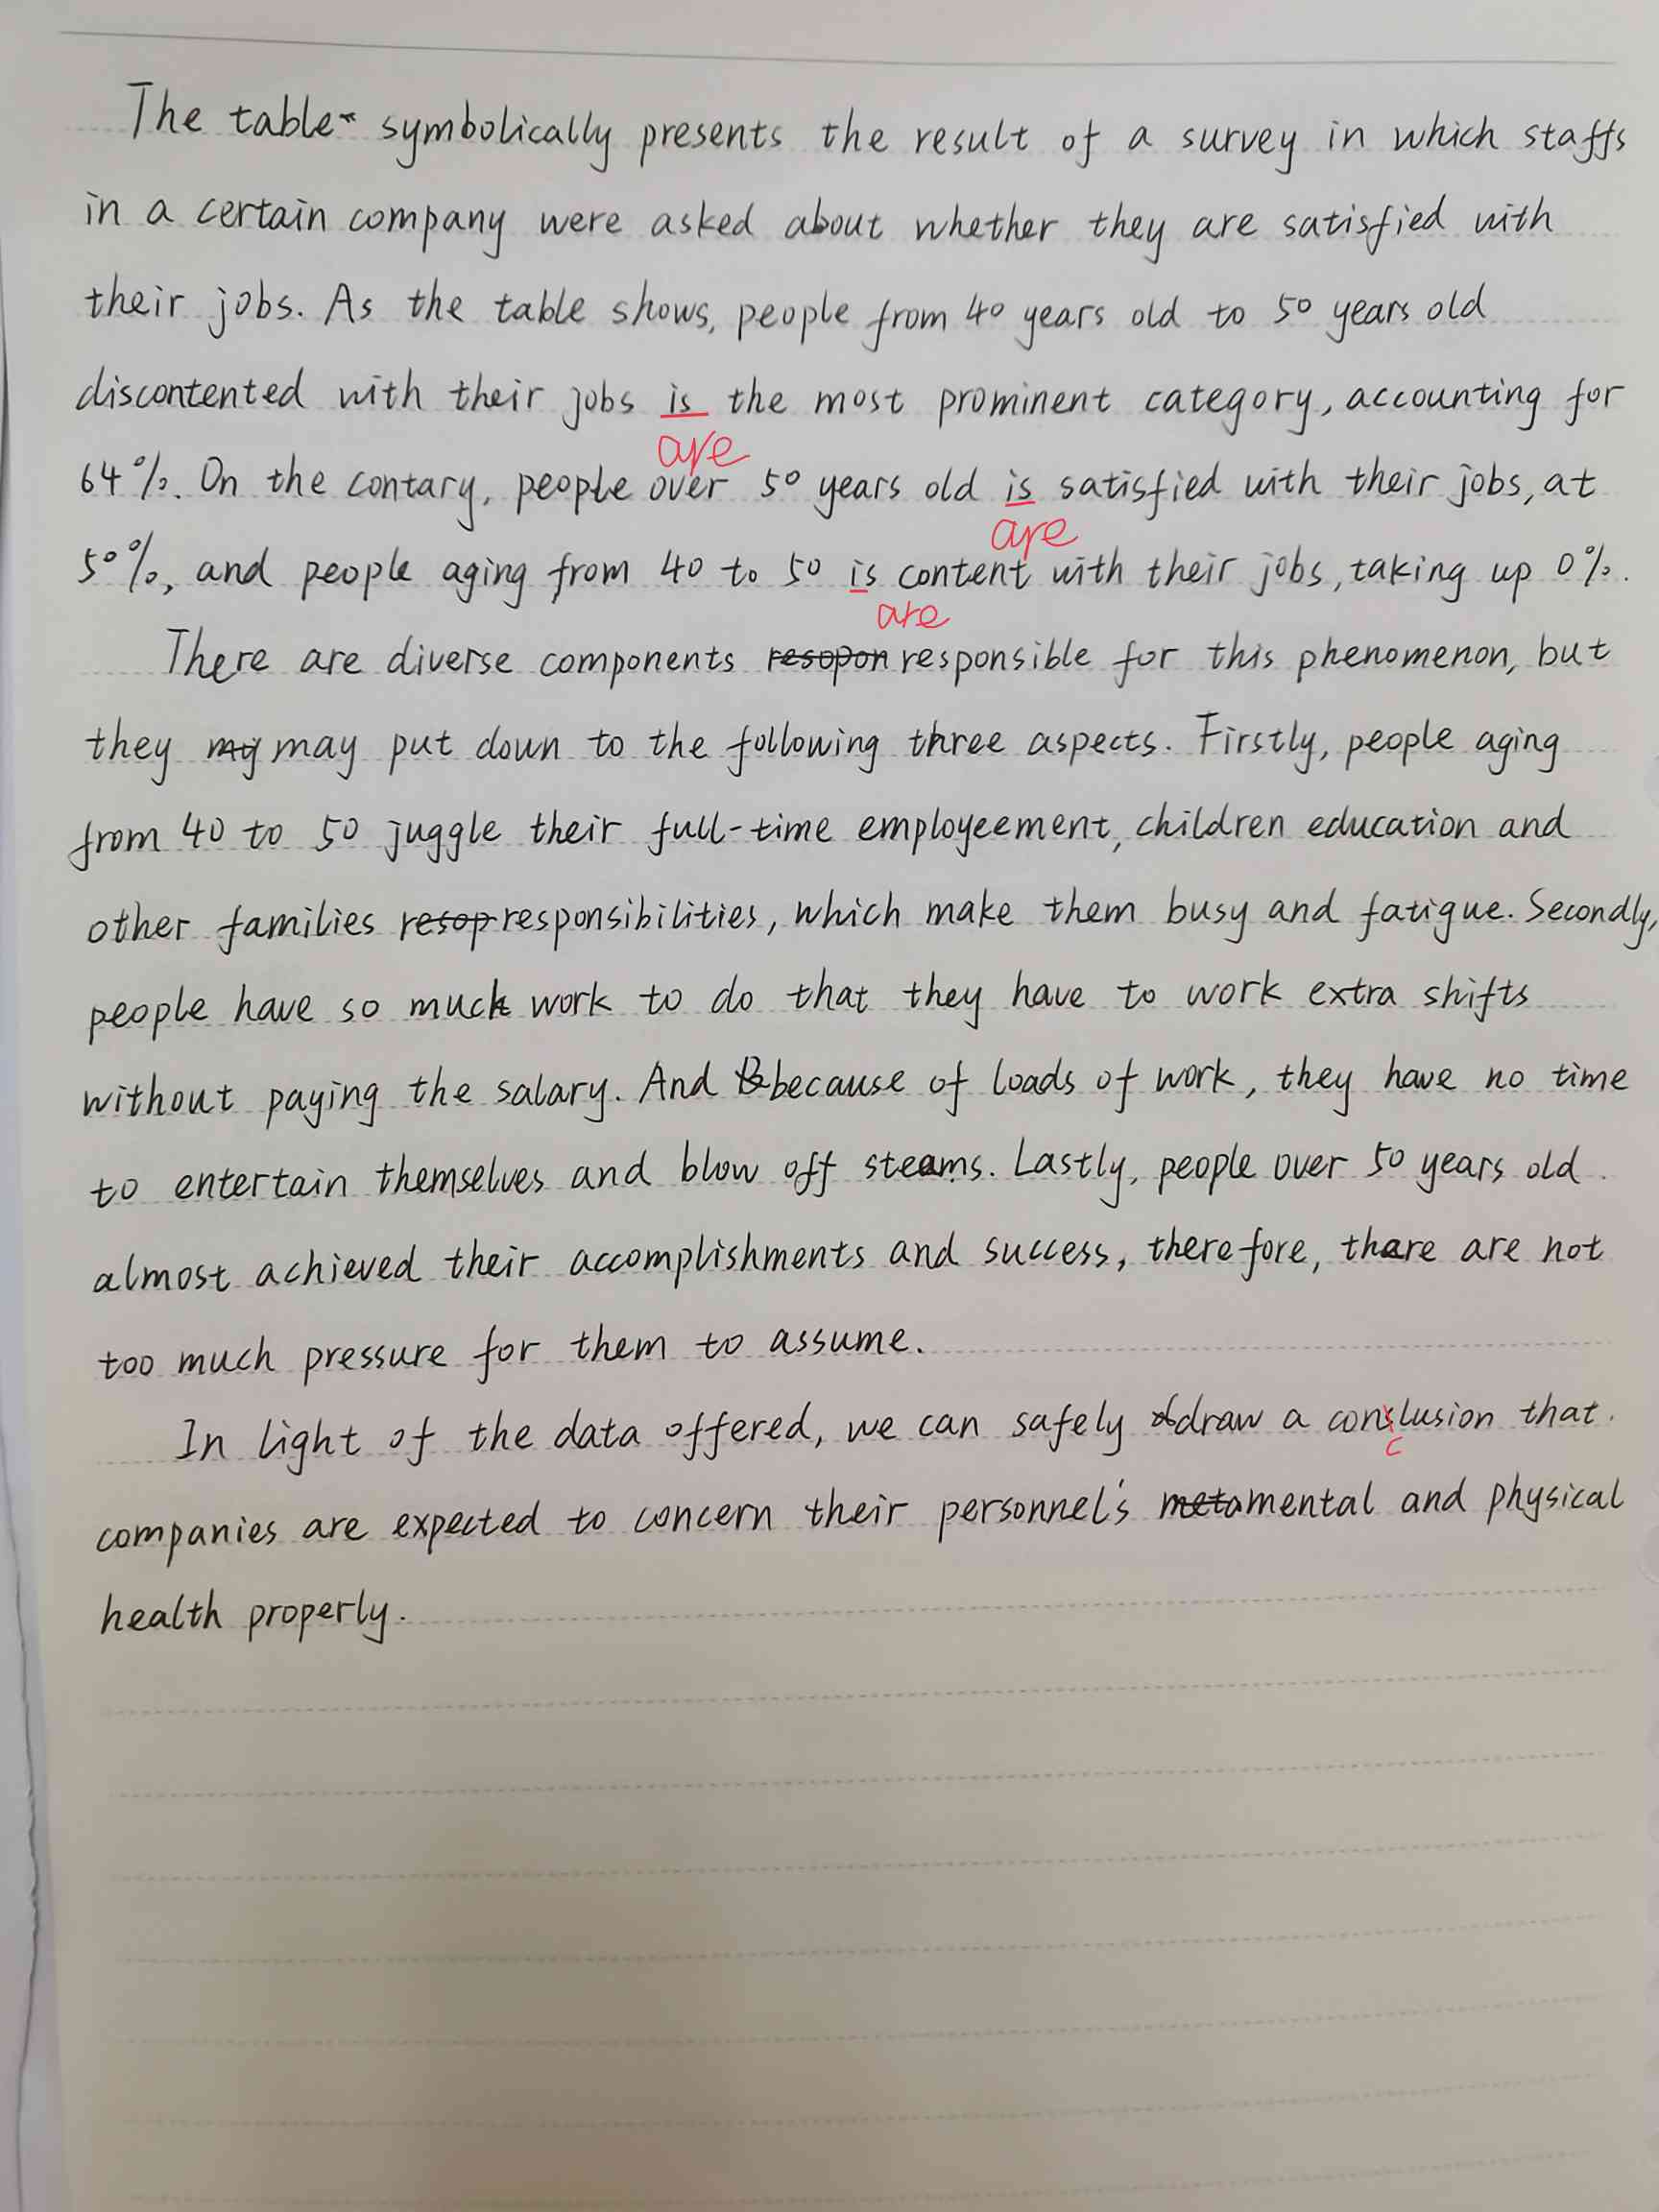 The table symbolically presents the result of a survey in which staffs
in a certain company were asked about whether they are satisfied with
their jobs. As the table shows, people from 40 years old to 50 years old
discontented with their jobs is the most prominent category, accounting for
are
64%. On the contary, people over 50 years old is satisfied with their jobs, at
are
50%, and people aging from 40 to 50 is content with their jobs, taking up 0%.
are
There are diverse components resopon responsible for this phenomenon, but
they my may put down to the following three aspects. Firstly, people aging
from 40 to 50 juggle their full-time employeement, children education and
other families resop responsibilities, which make them busy and fatigue. Secondly,
people have so much work to do that they have to work extra shifts
without paying the salary. And B because of loads of work, they have no time
to entertain themselves and blow off steams. Lastly, people over 50 years old
almost achieved their accomplishments and success, therefore, there are not
too much pressure for them to assume.
In light of the data offered, we can safely draw a conslusion that
c
companies are expected to concern their personnel's meta mental and physical
health properly.